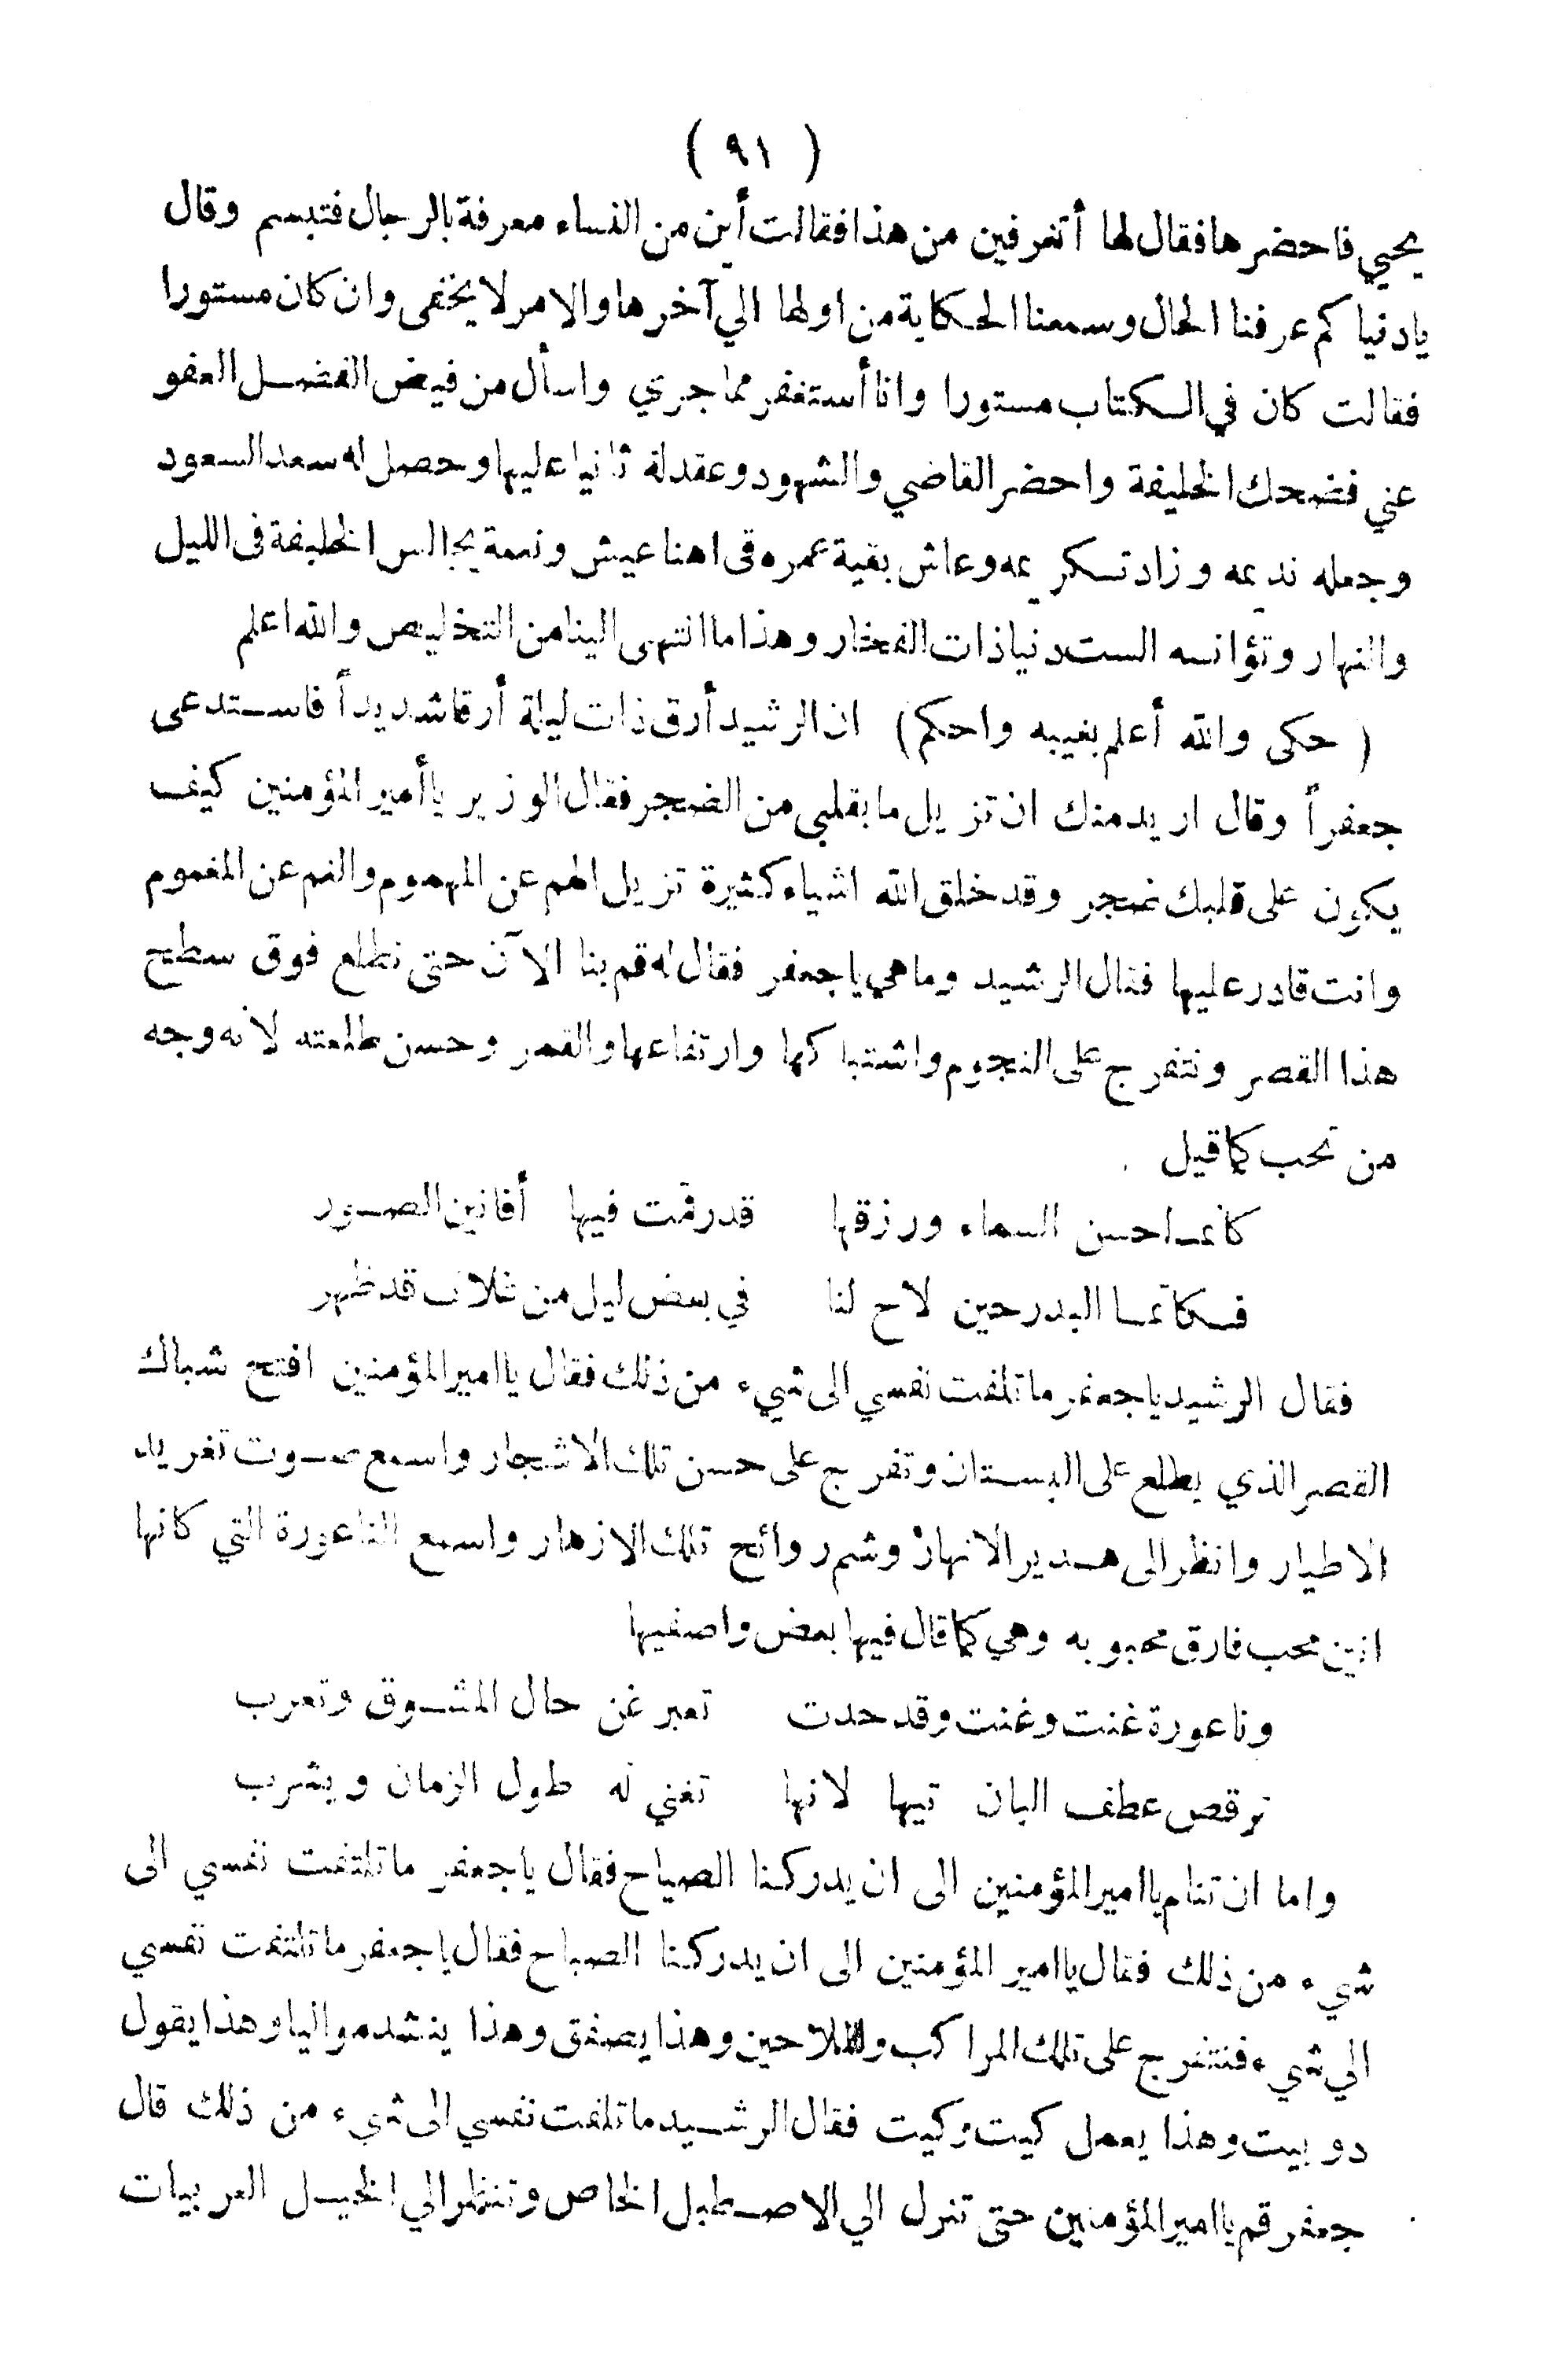 ( ٩١ )
يحيي فاحضرها فقال لها أتعرفين من هذا فقالت أين من النساء معرفة بالرجال فتبسم وقال
يادنيا كم عرفنا الحال وسمعنا الحكاية من اولها الي آخرها والامر لا يخفى وان كان مستورا
فقالت كان في الكتاب مستورا وانا أستغفر مما جري واسأل من فيض الفضل العفو
عني فضحك الخليفة واحضر القاضي والشهود وعقد له ثانيا عليها وحصل له سعد السعود
وجعله نديمه وزاد تكريمه وعاش بقية عمره في اهنا عيش ونعمة يجالس الخليفة في الليل
والنهار وتؤانسه الست دنيا ذات الفخار وهذا ما انتهى الينا من التخليص والله اعلم
( حكى والله أعلم بغيبه واحكم ) ان الرشيد أرق ذات ليلة أرقا شديداً فاستدعى
جعفراً وقال اريد منك ان تزيل ما بقلبي من الضجر فقال الوزير ياأمير المؤمنين كيف
يكون على قلبك ضجر وقد خلق الله اشياء كثيرة تزيل الهم عن المهموم والغم عن المغموم
وانت قادر عليها فقال الرشيد وما هي ياجعفر فقال له قم بنا الآن حتى نطلع فوق سطح
هذا القصر ونتفرج على النجوم واشتباكها وارتفاعها والقمر وحسن طلعته لانه وجه
من تحب كما قيل
كأنما حسن السماء ورزقها قد رقمت فيها أفانين الصور
فكأنما البدر حين لاح لنا في بعض ليل من غلاف قد ظهر
فقال الرشيد ياجعفر ما تلفت نفسي الى شيء من ذلك فقال ياامير المؤمنين افتح شباك
القصر الذي يطلع على البستان وتفرج على حسن تلك الاشجار واسمع صوت تغريد
الاطيار وانظر الى هدير الانهار وشم روائح تلك الازهار واسمع الناعورة التي كانها
انين محب فارق محبوبه وهي كما قال فيها بعض واصفيها
وناعورة غنت وغنت وقد حدت تعبر عن حال المشوق وتعرب
ترقص عطف البان تيها لانها تغني له طول الزمان ويشرب
واما ان تنام ياامير المؤمنين الى ان يدركنا الصباح فقال ياجعفر ما تلتفت نفسي الى
شيء من ذلك فقال ياامير المؤمنين الى ان يدركنا الصباح فقال ياجعفر ما تلتفت نفسي
الي شيء فنتفرج على تلك المراكب والملاحين وهذا يصفق وهذا ينشد مواليا وهذا يقول
دوبيت وهذا يعمل كيت وكيت فقال الرشيد ما تلفت نفسي الى شيء من ذلك قال
جعفر قم ياامير المؤمنين حتى تنزل الي الاصطبل الخاص وتنظر الي الخيل العربيات